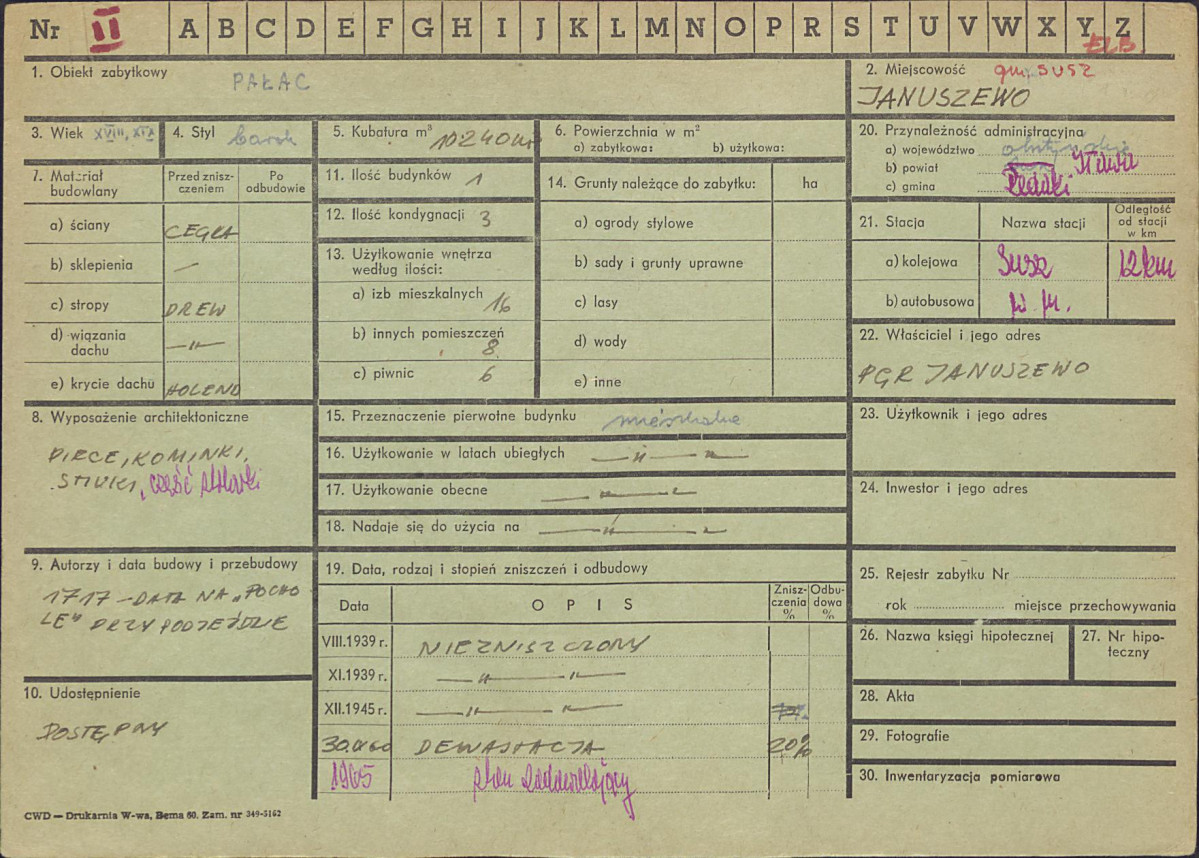 Nr II A B C D E F G H I J K L M N O P R S T U V W X Y Z
ELB
1. Obiekt zabytkowy
PAŁAC
2. Miejscowość gm. SUSZ
JANUSZEWO
3. Wiek XVIII, XIX
4. Styl barok
5. Kubatura m³ 10240 m³
6. Powierzchnia w m²
a) zabytkowa: b) użytkowa:
7. Materiał budowlany
Przed znisz-
czeniem
Po
odbudowie
a) ściany CEGŁA
b) sklepienia —
c) stropy DREW
d) wiązania
dachu —„—
e) krycie dachu HOLEND
8. Wyposażenie architektoniczne
PIECE, KOMINKI,
STIUKI, część stolarki
9. Autorzy i data budowy i przebudowy
1717 – DATA NA „POCHO
LE" PRZY PODJEŹDZIE
10. Udostępnienie
DOSTĘPNY
11. Ilość budynków 1
12. Ilość kondygnacji 3
13. Użytkowanie wnętrza
według ilości:
a) izb mieszkalnych 16
b) innych pomieszczeń
8
c) piwnic 6
14. Grunty należące do zabytku: ha
a) ogrody stylowe
b) sady i grunty uprawne
c) lasy
d) wody
e) inne
15. Przeznaczenie pierwotne budynku mieszkalne
16. Użytkowanie w latach ubiegłych —„—„—
17. Użytkowanie obecne —„—„—
18. Nadaje się do użycia na —„—„—
19. Data, rodzaj i stopień zniszczeń i odbudowy
Data OPIS
Znisz-
czenia
%
Odbu-
dowa
%
VIII.1939 r. NIEZNISZCZONY
XI.1939 r. —„—„—
XII.1945 r. —„—„—
DEWASTACJA 20%
1965 stan zadawalający
20. Przynależność administracyjna
a) województwo olsztyńskie
b) powiat Iława
c) gmina
21. Stacja
Nazwa stacji
Odległość
od stacji
w km
a) kolejowa Susz 12 km
b) autobusowa w m.
22. Właściciel i jego adres
PGR JANUSZEWO
23. Użytkownik i jego adres
24. Inwestor i jego adres
25. Rejestr zabytku Nr
rok miejsce przechowywania
26. Nazwa księgi hipotecznej
27. Nr hipo-
teczny
28. Akta
29. Fotografie
30. Inwentaryzacja pomiarowa
CWD — Drukarnia W-wa, Bema 60. Zam. nr 349-5162